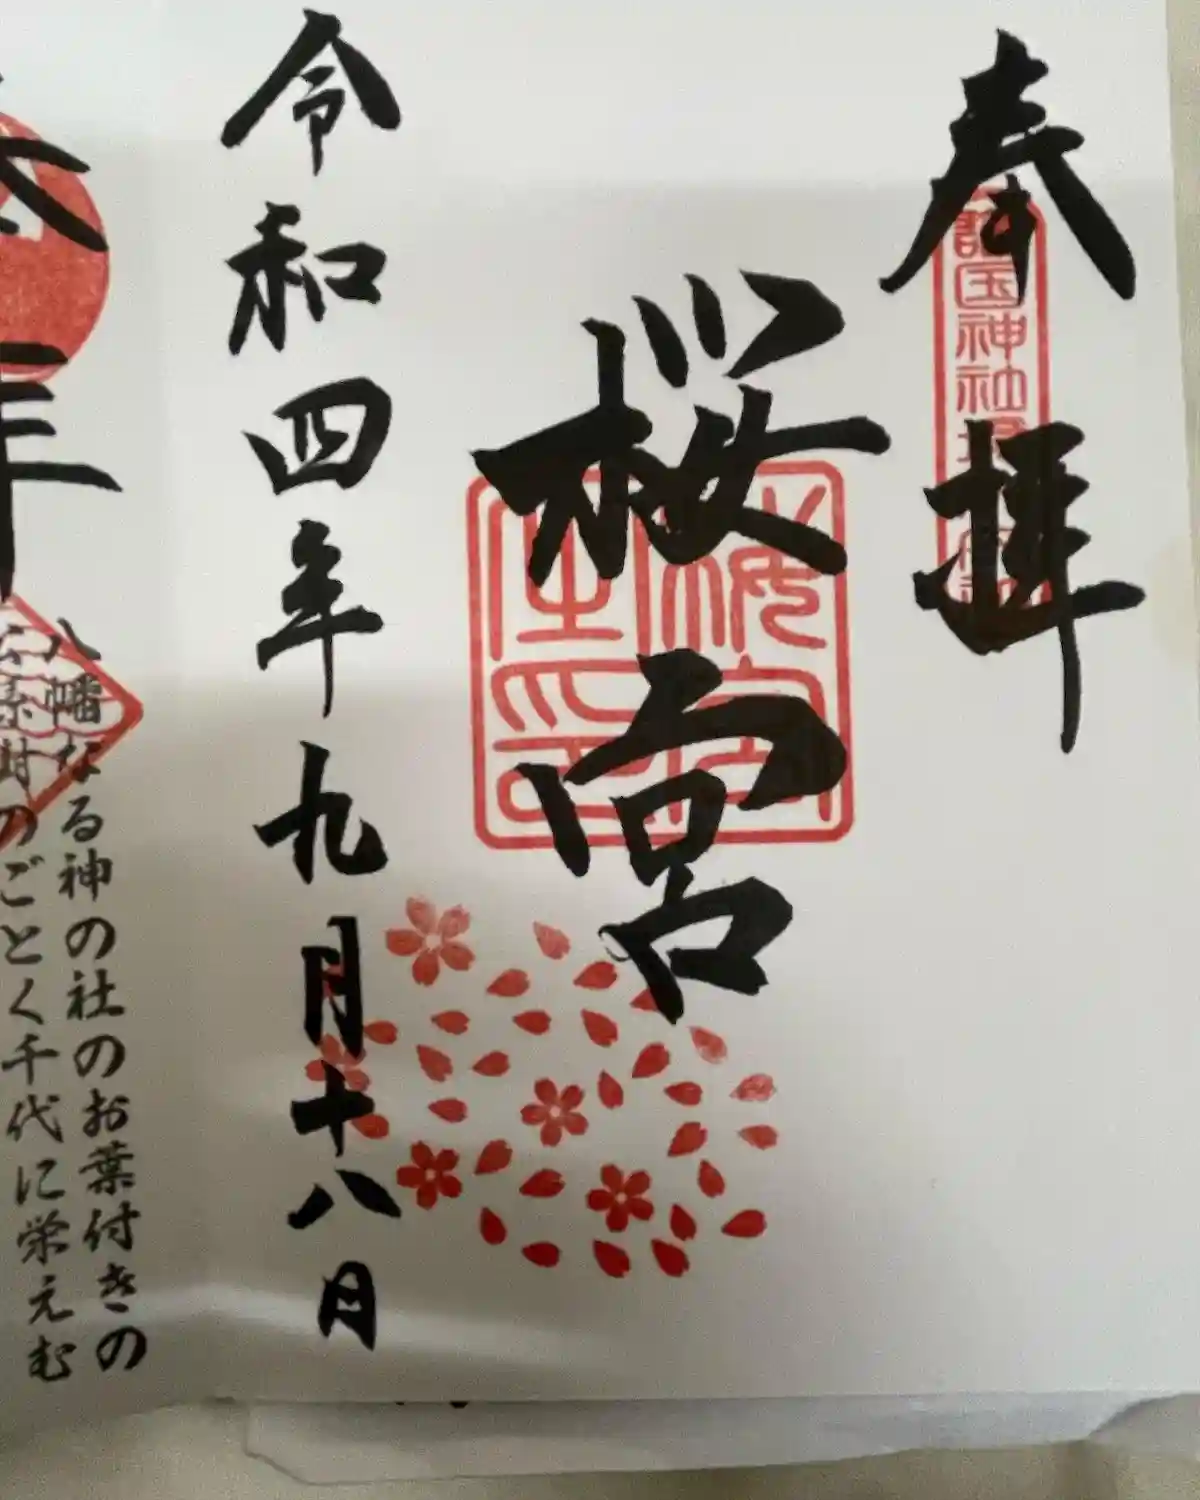 奉拝
護国神社
桜宮
桜宮之印
令和四年九月十八日
八幡なる神の社のお葉付きの
のごとく千代に栄えむ
年